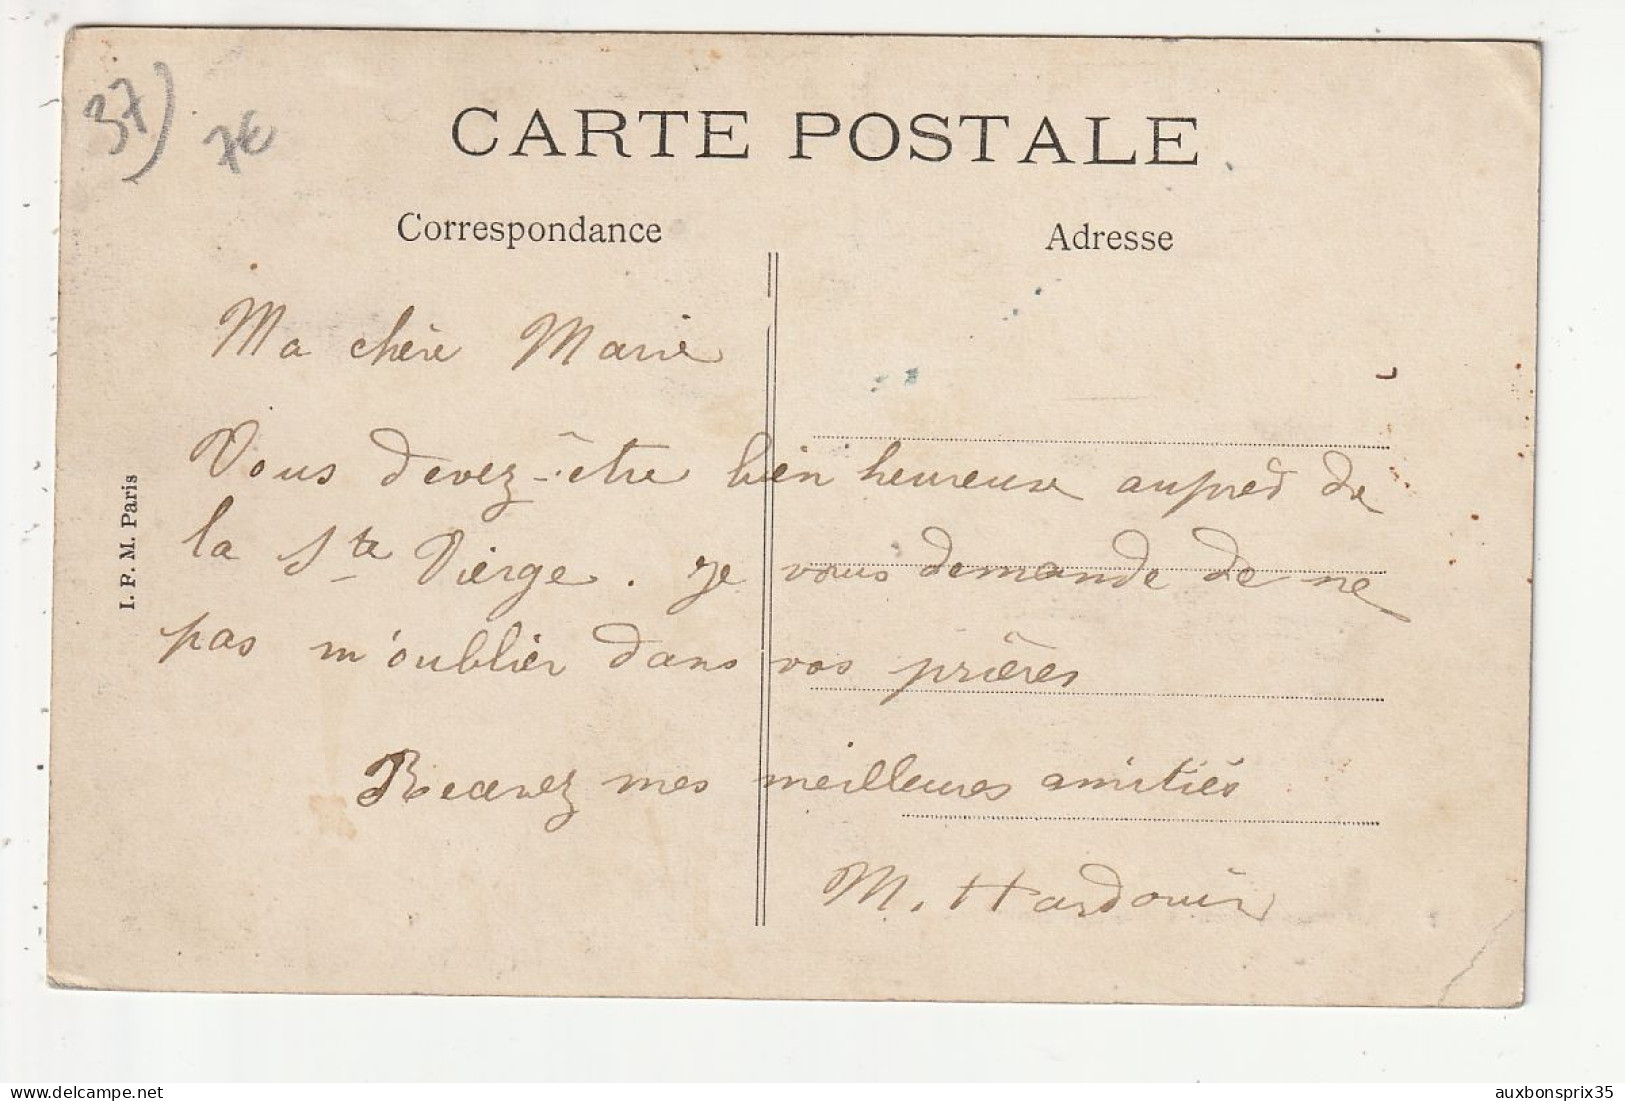 37)
7€
CARTE POSTALE
Correspondance
Adresse
Ma chère Marie
Vous devez-être bien heureuse auprès de
la Ste Vierge. Je vous demande de ne
pas m'oublier dans vos prières
Recevez mes meilleures amitiés
M. Hardouin
I. P. M. Paris
www.delcampe.net
auxbonsprix35